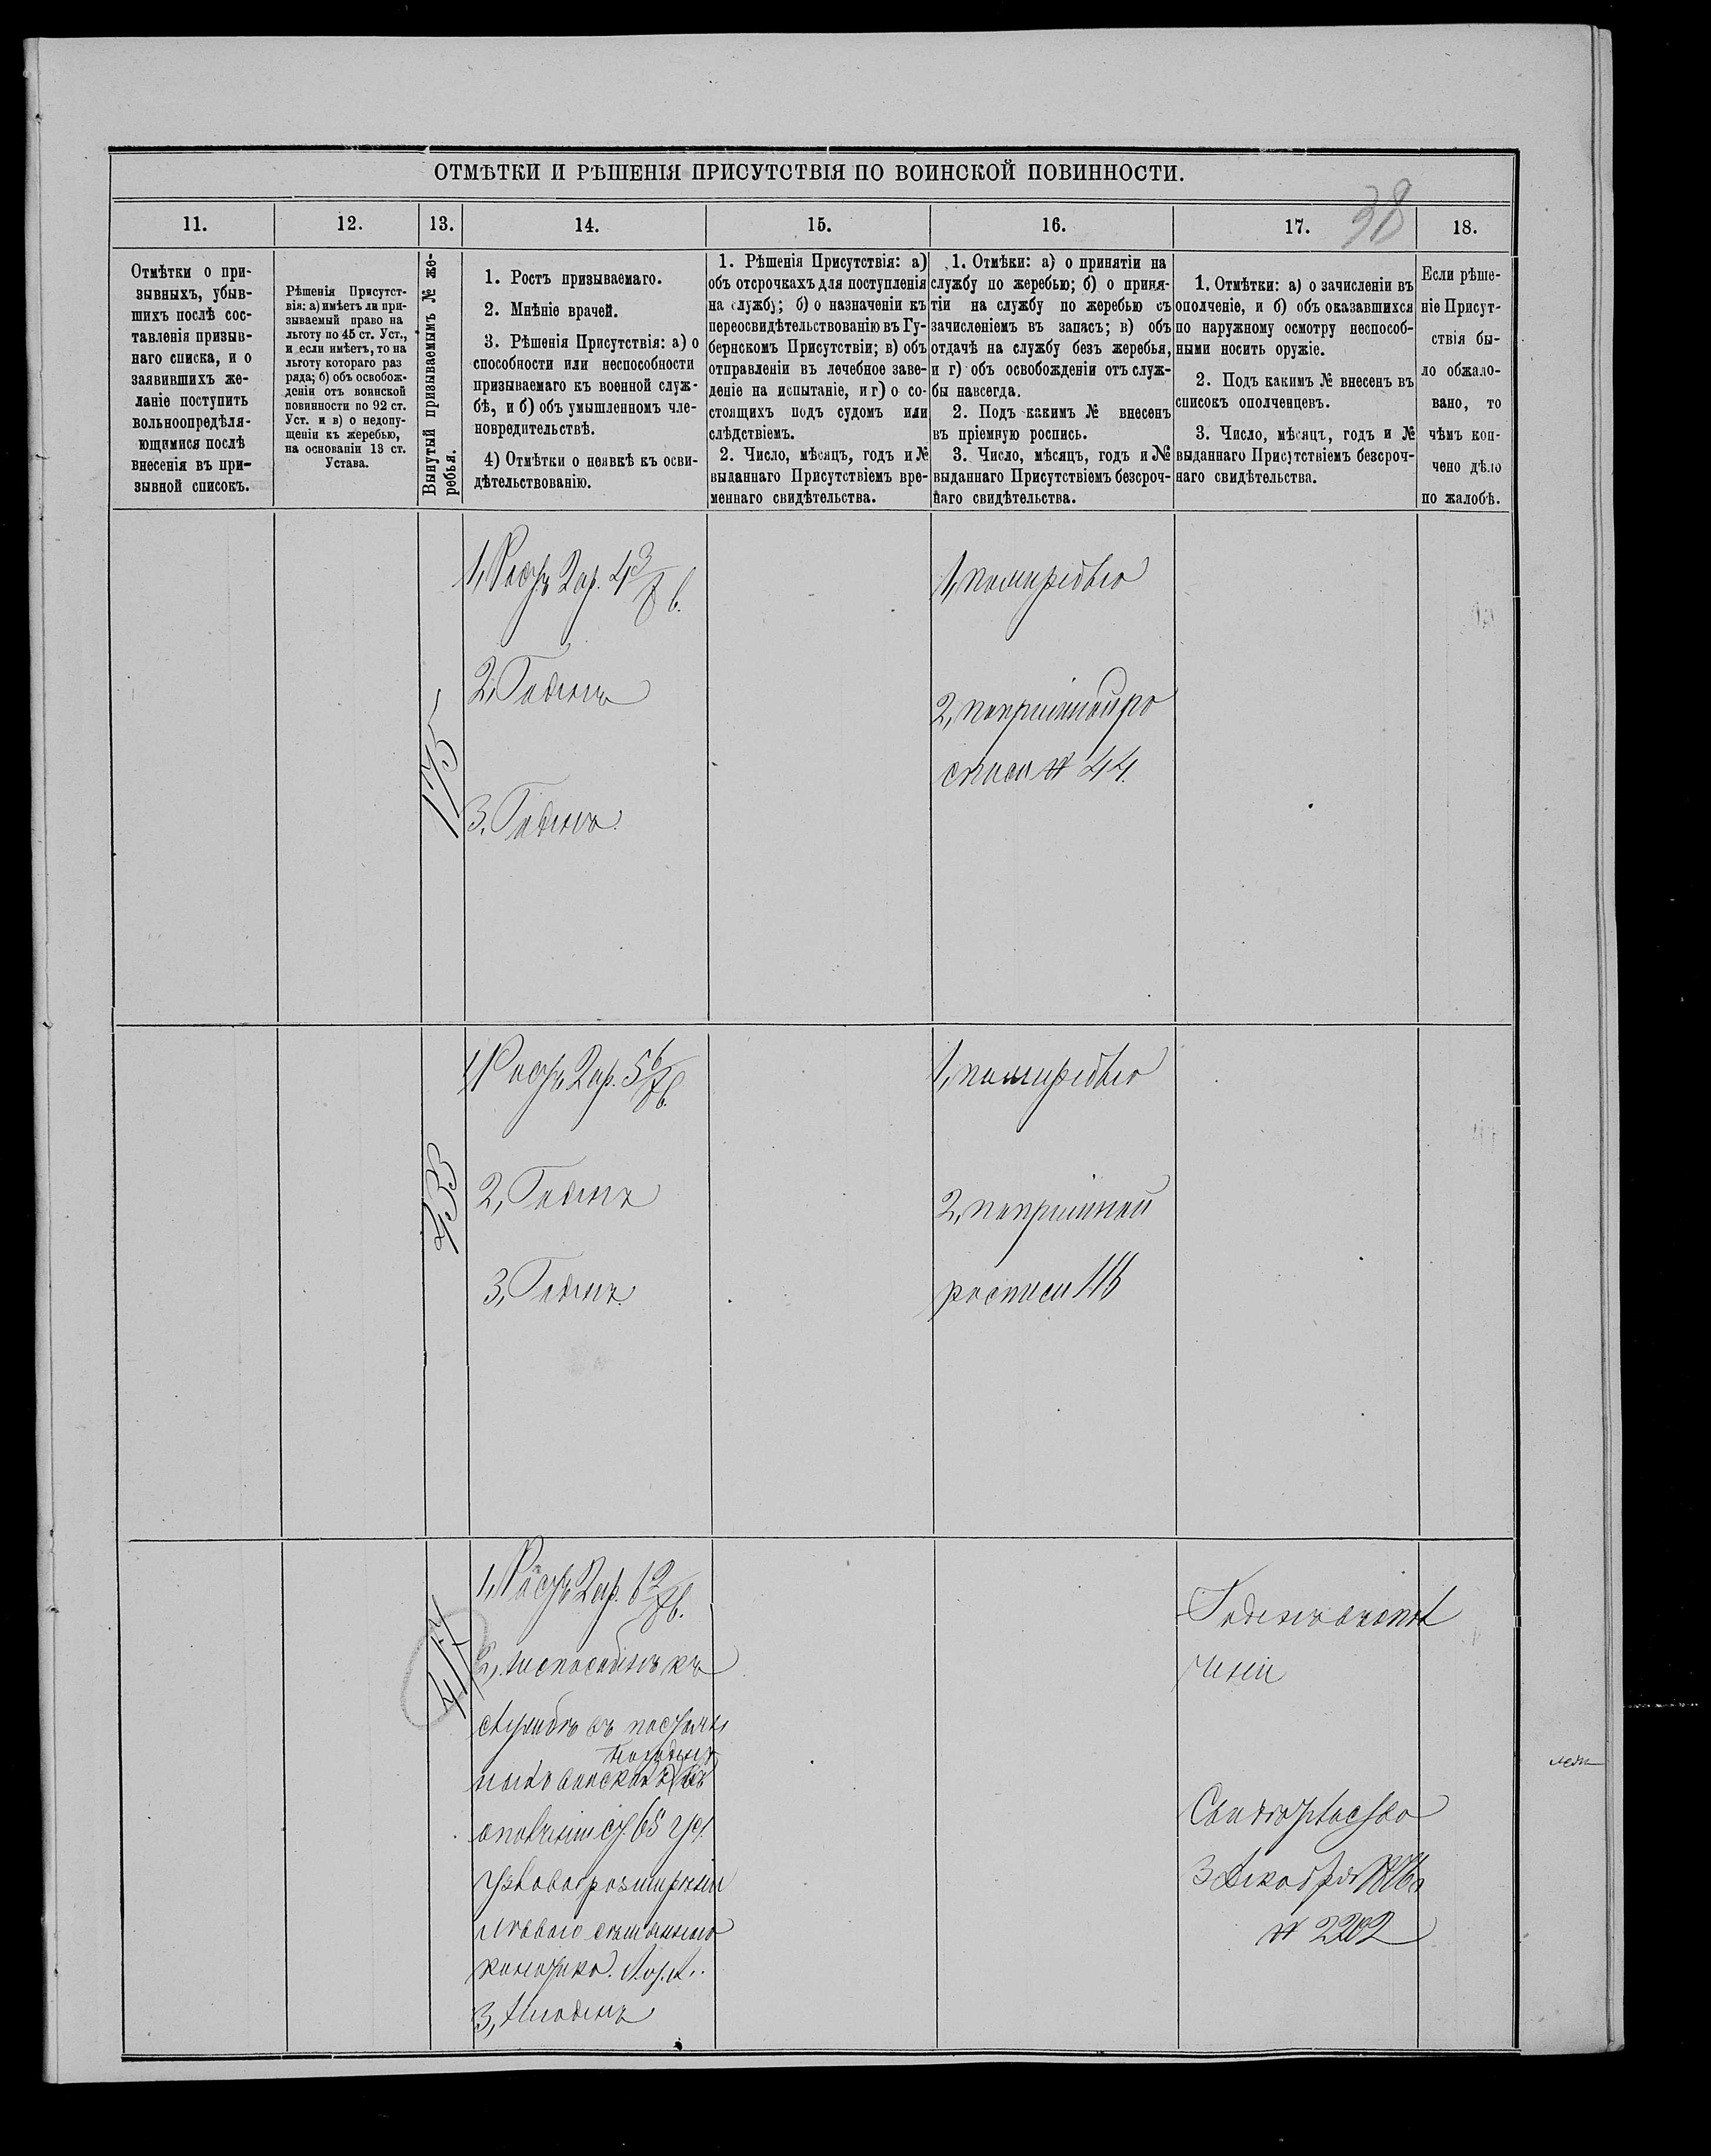 ОТМѢТКИ И РѢШЕНІЯ ПРИСУТСТВІЯ ПО ВОИНСКОЙ ПОВИННОСТИ.
38
11.
12.
13.
14.
15.
16.
17.
18.
Отмѣтки о при-
зывныхъ, убыв-
шихъ послѣ сос-
тавленія призыв-
наго списка, и о
заявившихъ же-
ланіе поступить
вольноопредѣля-
ющимися послѣ
внесенія въ при-
зывной списокъ.
Рѣшенія Присутст-
вія: а) имѣетъ ли при-
зываемый право на
льготу по 45 ст. Уст.,
и если имѣетъ, то на
льготу котораго раз
ряда; б) объ освобож-
деніи отъ воинской
повинности по 92 ст.
Уст. и в) о недопу-
щеніи къ жеребью,
на основаніи 13 ст.
Устава.
Вынутый призываемымъ № же-
ребья.
1. Ростъ призываемаго.
2. Мнѣніе врачей.
3. Рѣшенія Присутствія: а) о
способности или неспособности
призываемаго къ военной служ-
бѣ, и б) объ умышленномъ чле-
новредительствѣ.
4) Отмѣтки о неявкѣ къ осви-
дѣтельствованію.
1. Рѣшенія Присутствія: а)
объ отсрочкахъ для поступленія
на службу; б) о назначеніи къ
переосвидѣтельствованію въ Гу-
бернскомъ Присутствіи; в) объ
отправленіи въ лечебное заве-
деніе на испытаніе, и г) о со-
стоящихъ подъ судомъ или
слѣдствіемъ.
2. Число, мѣсяцъ, годъ и №
выданнаго Присутствіемъ вре-
меннаго свидѣтельства.
1. Отмѣки: а) о принятіи на
службу по жеребью; б) о приня-
тіи на службу по жеребью съ
зачисленіемъ въ запасъ; в) объ
отдачѣ на службу безъ жеребья,
и г) объ освобожденіи отъ служ-
бы навсегда.
2. Подъ какимъ № внесенъ
въ пріемную роспись.
3. Число, мѣсяцъ, годъ и №
выданнаго Присутствіемъ безсроч-
наго свидѣтельства.
1. Отмѣтки: а) о зачисленіи въ
ополченіе, и б) объ оказавшихся
по наружному осмотру неспособ-
ными носить оружіе.
2. Подъ какимъ № внесенъ въ
списокъ ополченцевъ.
3. Число, мѣсяцъ, годъ и №
выданнаго Присутствіемъ безсроч-
наго свидѣтельства.
Если рѣше-
ніе Присут-
ствія бы-
ло обжало-
вано, то
чѣмъ кон-
чено дѣло
по жалобѣ.
175
1, Ростъ 2 ар. 4 3/8 в.
2, Годенъ
3. Годенъ.
1, по жеребью
2, по пріемной ро
списи № 44.
433
1, Ростъ 2 ар. 5 6/8 в.
2, Годенъ
3, Годенъ.
1, по жеребью
2, по пріемной
росписи 116
417
1, Ростъ 2 ар. 6 2/8 в.
2, неспособенъ къ
службѣ въ постоян
ныхъ войскахъ
годенъ въ
ополченіе ст. 65
расширеніи
леваго сѣменнаго
канатика.
3, Негоденъ
Годенъ въ опол
ченіи
Свидѣтельство
3 Декабря
№ 2202